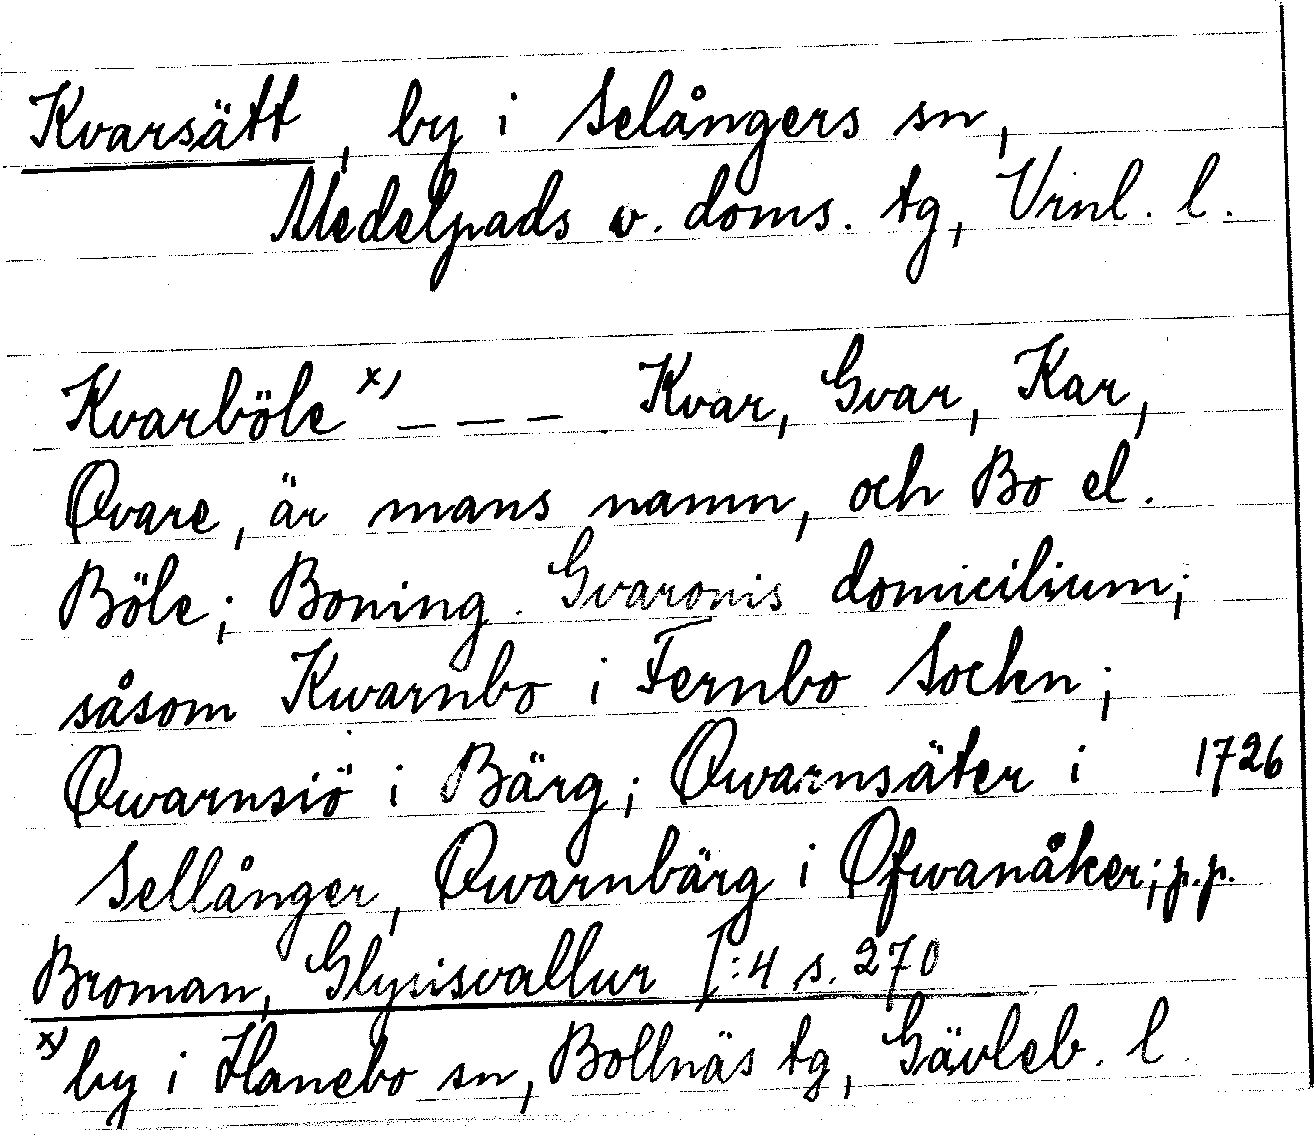 Kvarsätt, by i Selångers sn,
Medelpads v. doms. tg, Vrnl. l.
Kvarböle x) _ _ _ Kvar, Gvar, Kar,
Qvare, är mans namn, och Bo el.
Böle; Boning. Gvaronis domicilium;
såsom Kwarnbo i Fernbo Sockn;
Qwarnsiö i Bärg; Qwarnsäter i 1726
Sellånger, Qwarnbärg i Ofwanåker; p.p.
Broman, Glysisvallur I:4 s. 270
x) by i Hanebo sn, Bollnäs tg, Gävleb. l.